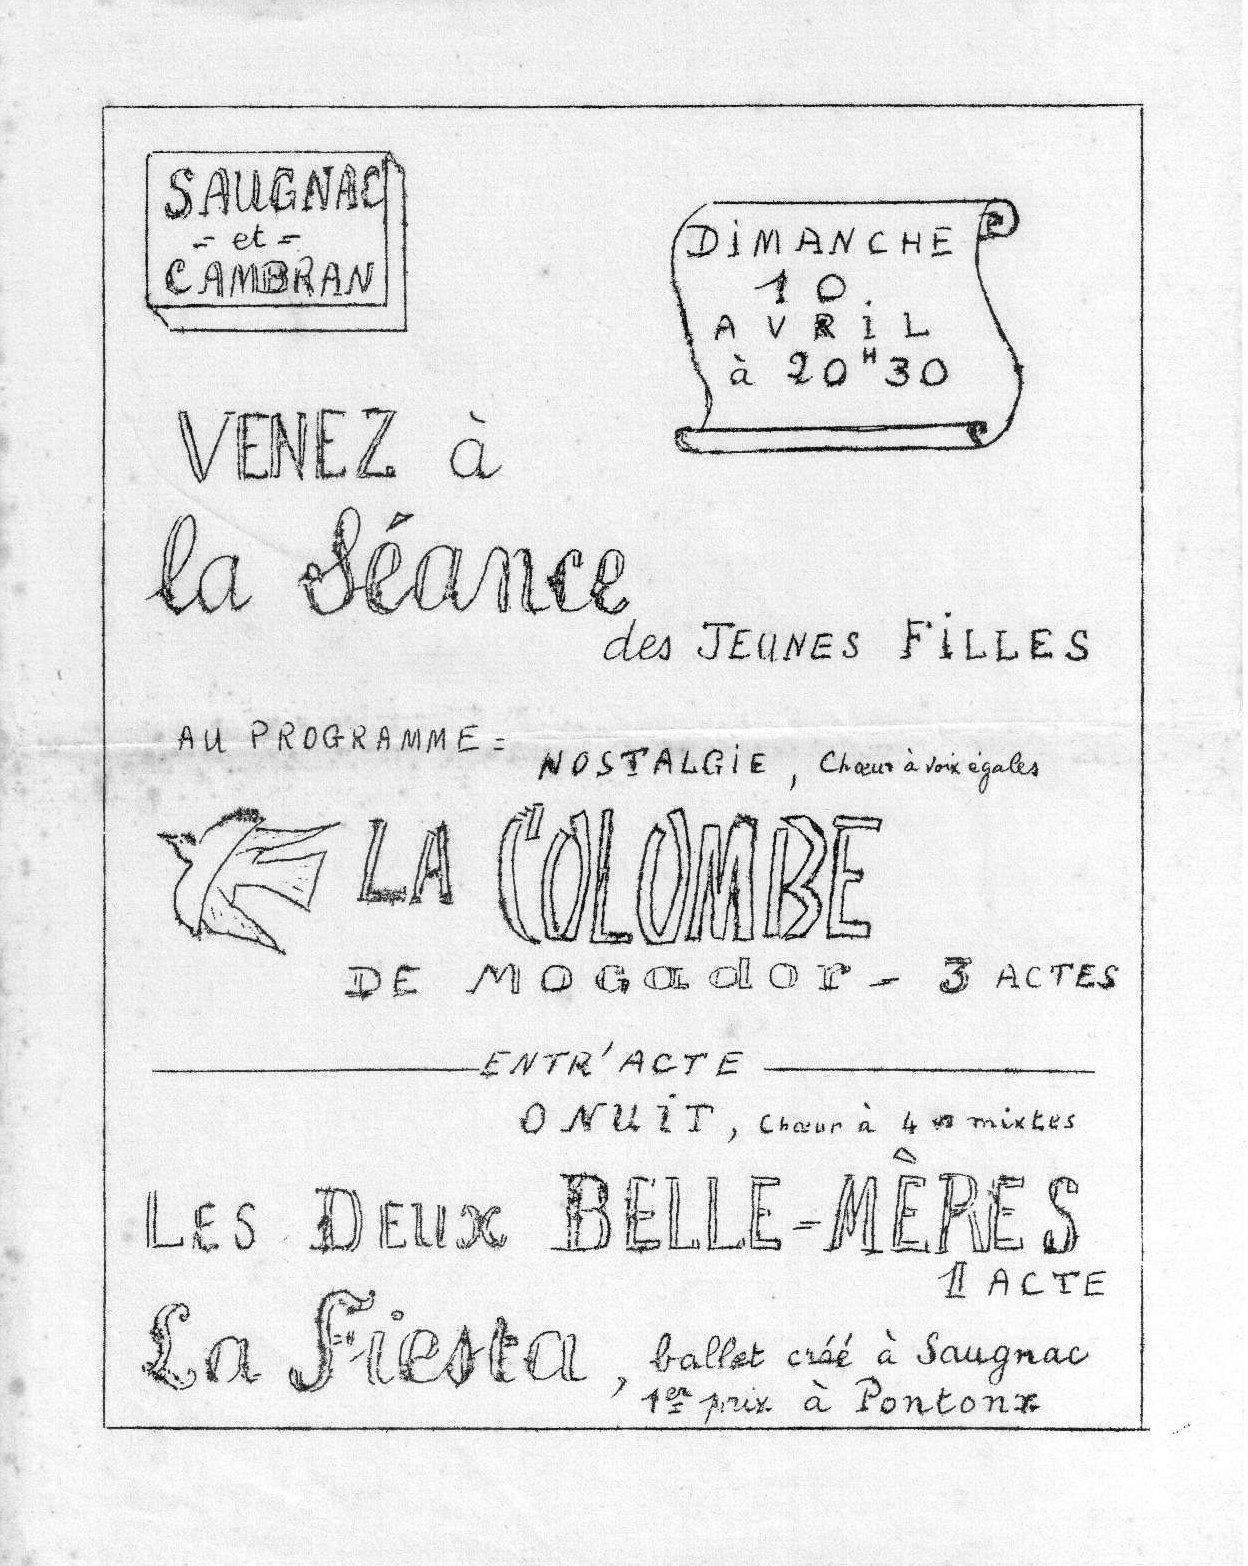 SAUGNAC
- et -
CAMBRAN
DiMANCHE
10
AVRiL
à 20H30
VENEZ à
la Séance
des JEUNES FiLLES
AU PROGRAMME =
NOSTALGiE, Chœur à voix égales
LA COLOMBE
DE MOGador - 3 ACTES
ENTR'ACTE
O NUiT, Chœur à 4 mixtes
LES DEUX BELLE-MÈRES
1 ACTE
La Fiesta, ballet créé à Saugnac
1er prix à Pontonx